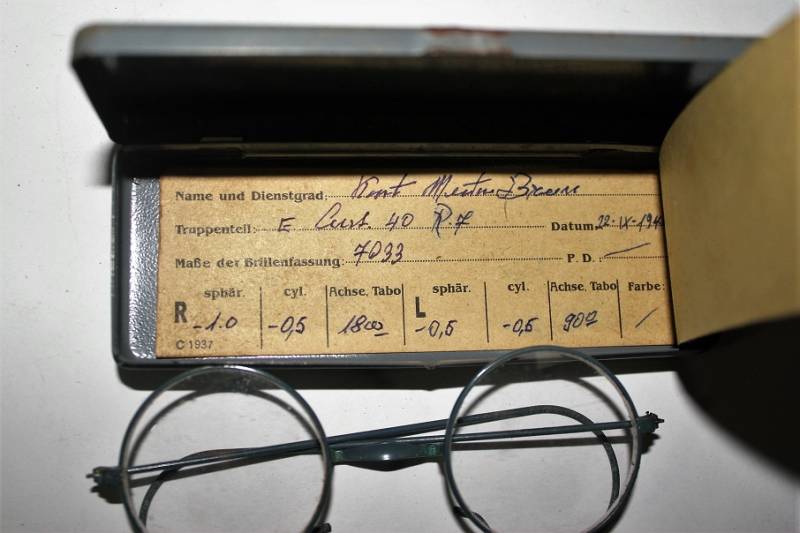 Name und Dienstgrad: Kurt
Truppenteil: E 40 R 7 Datum 22-IX-194
Maße der Brillenfassung: 7033 P. D.:
sphär. cyl. Achse, Tabo sphär. cyl. Achse, Tabo Farbe:
R -1.0 -0,5 180 L -0,5 -0,5 90
C 1937